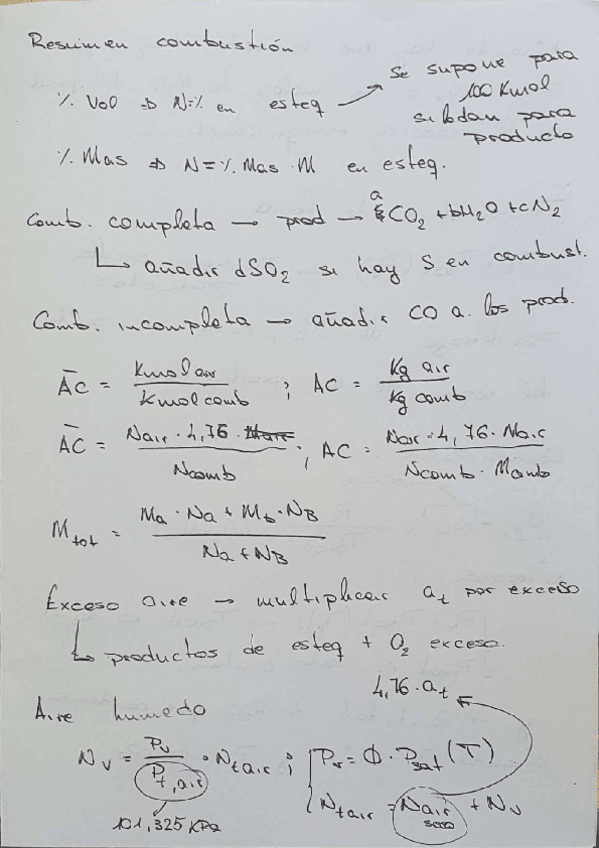 Resumen combustión
% Vol ⇒ N=% en esteq → Se supone para
100 Kmol
si lo dan para
producto
% Mas ⇒ N=% Mas · M en esteq.
Comb. completa → prod → aCO₂ + bH₂O + cN₂
↳ añadir dSO₂ si hay S en combust.
Comb. incompleta → añadir CO a los prod.
A̅C̅ = Kmol air / Kmol comb ; AC = Kg air / Kg comb
A̅C̅ = Nair · 4,76 / Ncomb ; AC = Nair · 4,76 · Mair / Ncomb · Mcomb
M_tot = Ma · Na + Mb · NB / Na + NB
Exceso aire → multiplicar a_t por exceso
↳ productos de esteq + O₂ exceso.
4,76 · a_t
Aire humedo
N_v = P_v / P_t,air · N_t air ; { P_v = Ø · P_sat (T)
N_t air = N air seco + N_v
101,325 KPa